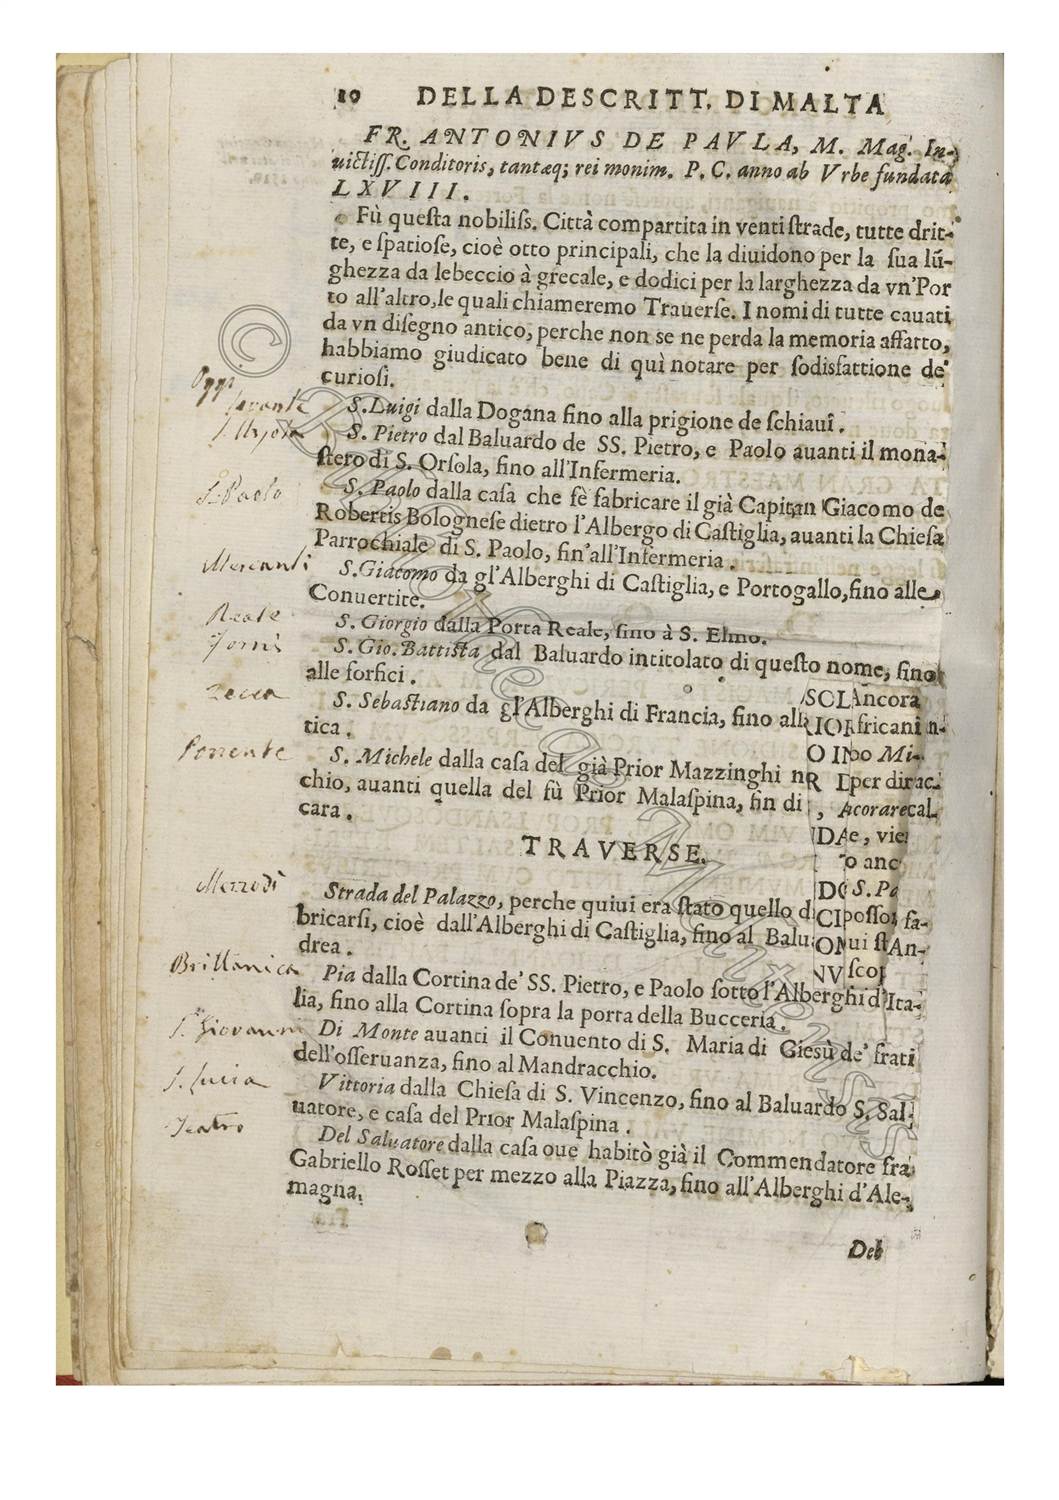 10 DELLA DESCRITT. DI MALTA
FR. ANTONIVS DE PAVLA, M. Mag. In-
uictiſſ. Conditoris, tantæq; rei monim. P. C. anno ab Vrbe fundata
LXVIII.
Fù queſta nobiliſs. Città compartita in venti ſtrade, tutte drit-
te, e ſpatioſe, cioè otto principali, che la diuidono per la ſua lū-
ghezza da lebeccio à grecale, e dodici per la larghezza da vn'Por
to all'altro, le quali chiameremo Trauerſe. I nomi di tutte cauati
da vn diſegno antico, perche non se ne perda la memoria affatto,
habbiamo giudicato bene di quì notare per ſodisfattione de'
curioſi.
Oggi
levante
S. Luigi dalla Dogana fino alla prigione de ſchiaui.
S. Pietro dal Baluardo de SS. Pietro, e Paolo auanti il mona-
ſtero di S. Orſola, fino all'Infermeria.
S. Paolo
S. Paolo dalla caſa che fè fabricare il già Capitan Giacomo de
Robertis Bologneſe dietro l'Albergo di Caſtiglia, auanti la Chieſa
Parrochiale di S. Paolo, fin'all'Infermeria.
Mercanti
S. Giacomo da gl'Alberghi di Caſtiglia, e Portogallo, fino alle
Conuertite.
Reale
S. Giorgio dalla Porta Reale, fino à S. Elmo.
Forni
S. Gio. Battiſta dal Baluardo intitolato di queſto nome, fino
alle forfici.
Zecca
S. Sebaſtiano da gl'Alberghi di Francia, fino all
tica.
Ponente
S. Michele dalla caſa del già Prior Mazzinghi
chio, auanti quella del fù Prior Malaſpina, fin di
cara.
SOL Ancora
fricani n-
O IN po Mi-
per dirac-
corare cal-
e, vie
o anc
S. Pa
poſſo, fa-
ui ſt An-
NV ſcop
TRAVERSE.
Mezzodì
Strada del Palazzo, perche quiui era ſtato quello d
bricarſi, cioè dall'Alberghi di Caſtiglia, fino al Balu
drea.
Brittanica
Pia dalla Cortina de' SS. Pietro, e Paolo ſotto l'Alberghi d'Ita-
lia, fino alla Cortina ſopra la porta della Bucceria.
S. Giovanni
Di Monte auanti il Conuento di S. Maria di Gieſù de' frati
dell'oſſeruanza, fino al Mandracchio.
S. Lucia
Vittoria dalla Chieſa di S. Vincenzo, fino al Baluardo S. Sal-
uatore, e caſa del Prior Malaſpina.
Teatro
Del Saluatore dalla caſa oue habitò già il Commendatore fra
Gabriello Roſſet per mezzo alla Piazza, fino all'Alberghi d'Ale-
magna.
Deb
© Bibliotheca Melitensis